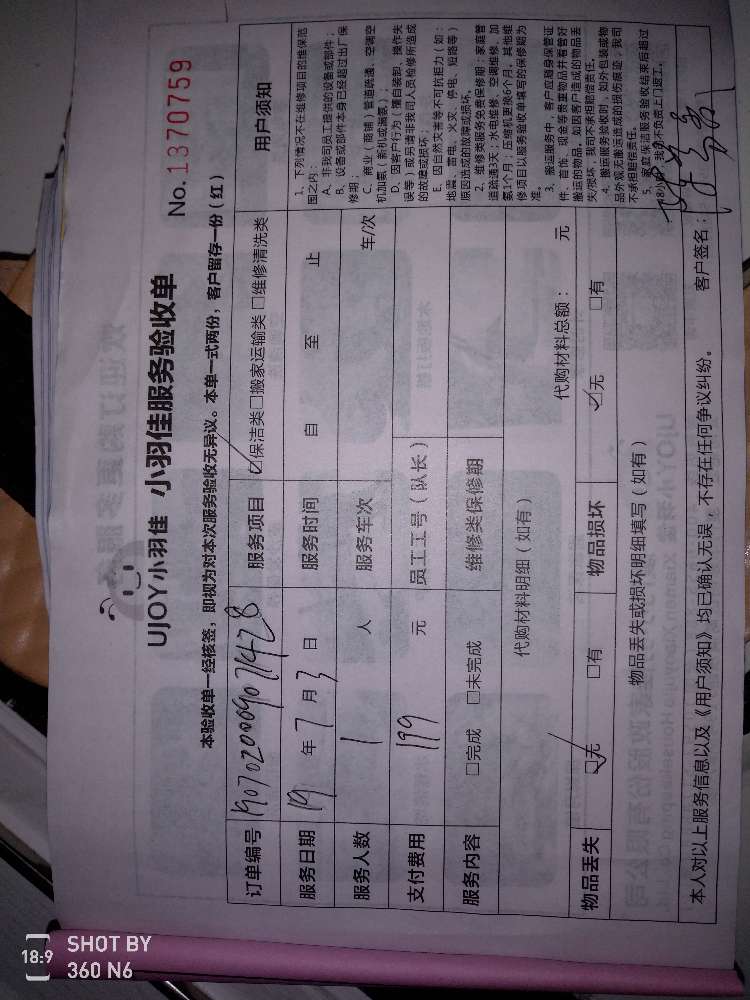 UJOY小羽佳 小羽佳服务验收单
No.1370759
本验收单一经核签，即视为对本次服务验收无异议。本单一式两份，客户留存一份（红）
订单编号
服务项目 ☑保洁类□搬家运输类 □维修清洗类
服务日期 19 年 7 月 3 日 服务时间 自 至 止
服务人数 1 人 服务车次 车/次
支付费用 199 元 员工工号（队长）
服务内容 □完成 □未完成 维修类保修期
代购材料明细（如有）
代购材料总额： 元
物品丢失 ☑无 □有 物品损坏 ☑无 □有
物品丢失或损坏明细填写（如有）
本人对以上服务信息以及《用户须知》均已确认无误，不存在任何争议纠纷。 客户签名：
用户须知
1、下列情况不在维修项目的维保范
围之内：
A、非我司员工提供的设备或部件；
B、设备或部件本身已经超过出厂保
修期；
C、商业（商铺）管道疏通、空调空
机加氨（新机或满氨）；
D、因客户行为（擅自装卸、操作失
误等）或另请非我司人员检修所造成
的故障或损坏；
E、因自然灾害等不可抗拒力（如：
地震、雷电、火灾、停电、短路等）
原因造成的故障或损坏。
2、维修类服务免费保修期：家庭管
道疏通3天；水电维修、空调维修、加
氨1个月；压缩机更换6个月，其他维
修项目以服务验收单填写的保修期为
准。
3、搬运服务中，客户应随身保管证
件、首饰、现金等贵重物品并看管好
搬运的物品，如因客户造成的物品丢
失/损坏，我司不承担赔偿责任。
4、搬运服务验收时，如外包装或物
品外观无搬运造成的损伤痕迹，我司
不承担赔偿责任。
5、家庭保洁服务验收结束后超过
SHOT BY
360 N6
18:9